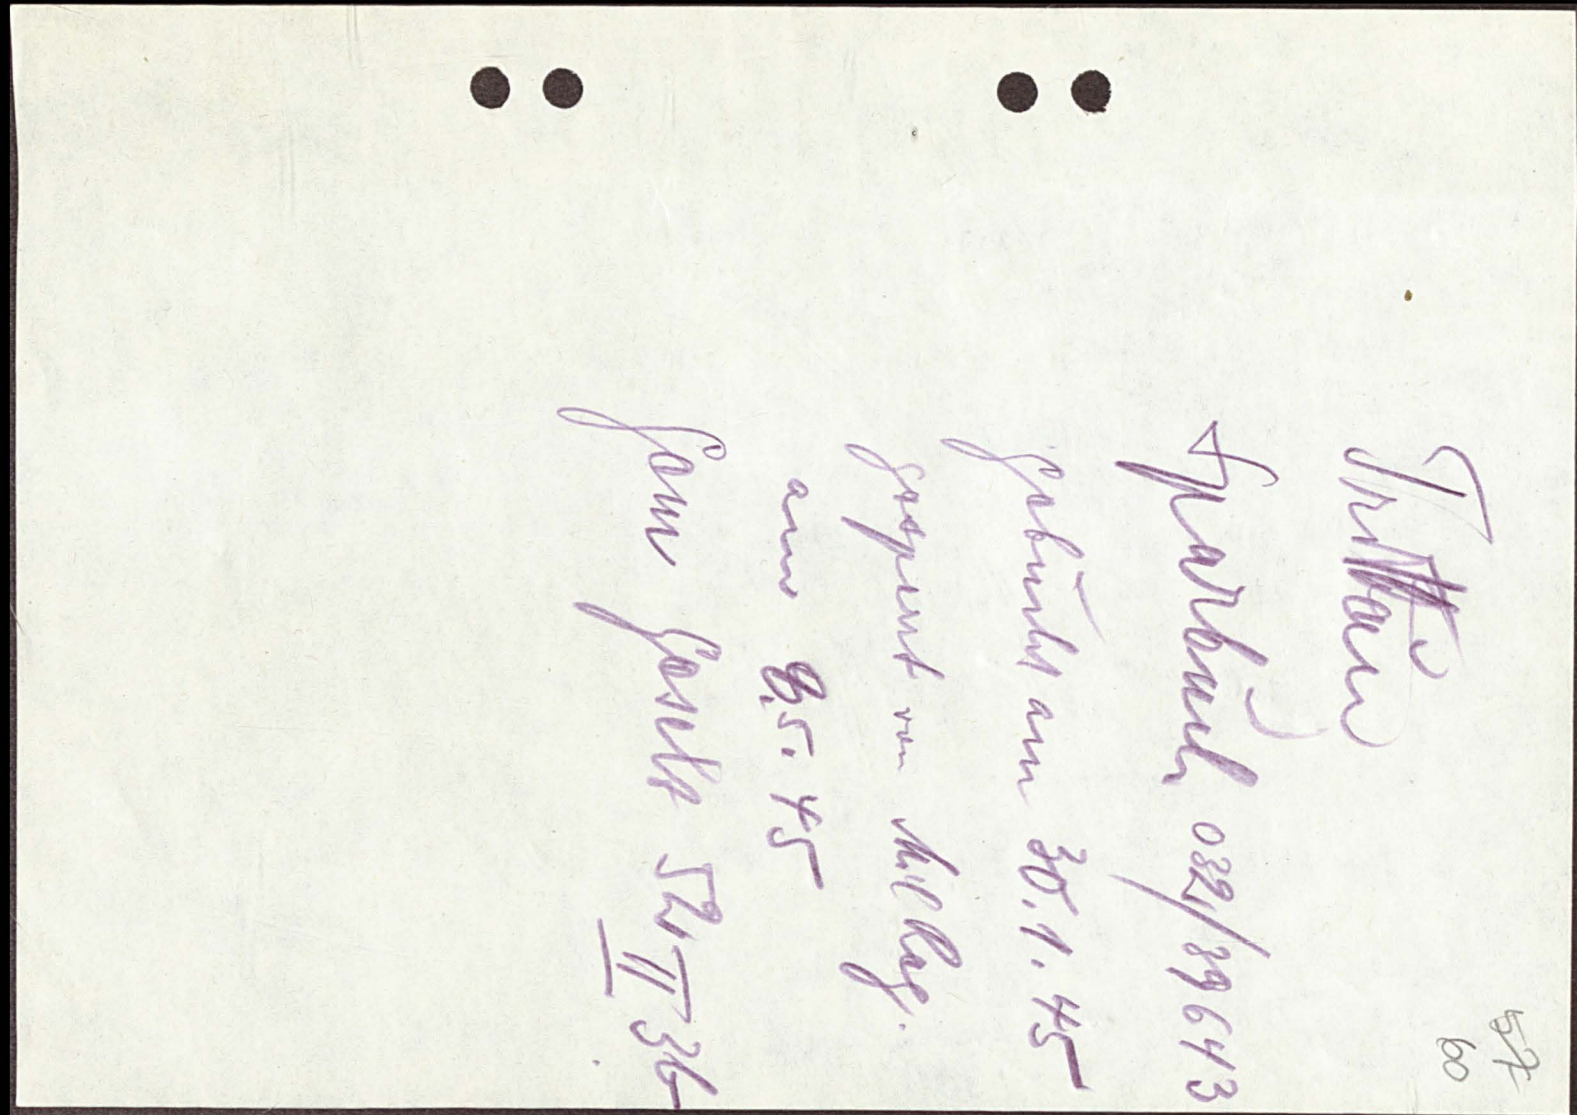 57
60
Trittau
Sparbuch 032/39643
gebucht am 30.1.45
gesperrt von Mil Reg.
am 8.5.45
gem Gesetz 52 II 3b